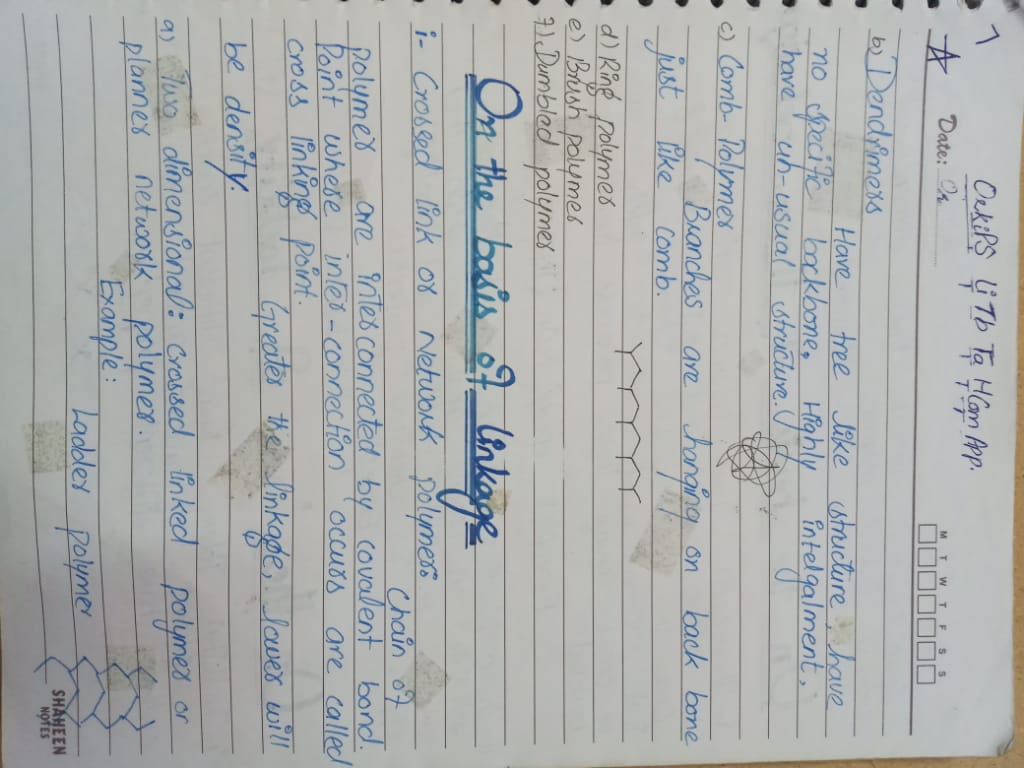 Date:
M T W T F S S
b) Dendrimers
Have tree like structure have
no specific backbone, Highly
have un-usual structure.
c) Comb Polymers
Branches are hanging on back bone
just like comb.
d) Ring polymers
e) Brush polymers
7) Dumbled polymers
On the basis of linkage
i- Crossed link or Network polymers
Chain of
polymer are interconnected by covalent bond.
Point where inter-connection occurs are called
cross linking point.
Greater the linkage, lower will
be density.
a) Two dimensional: crossed linked polymer or
planer network polymer.
Example:
Ladder polymer
SHAHEEN
NOTES